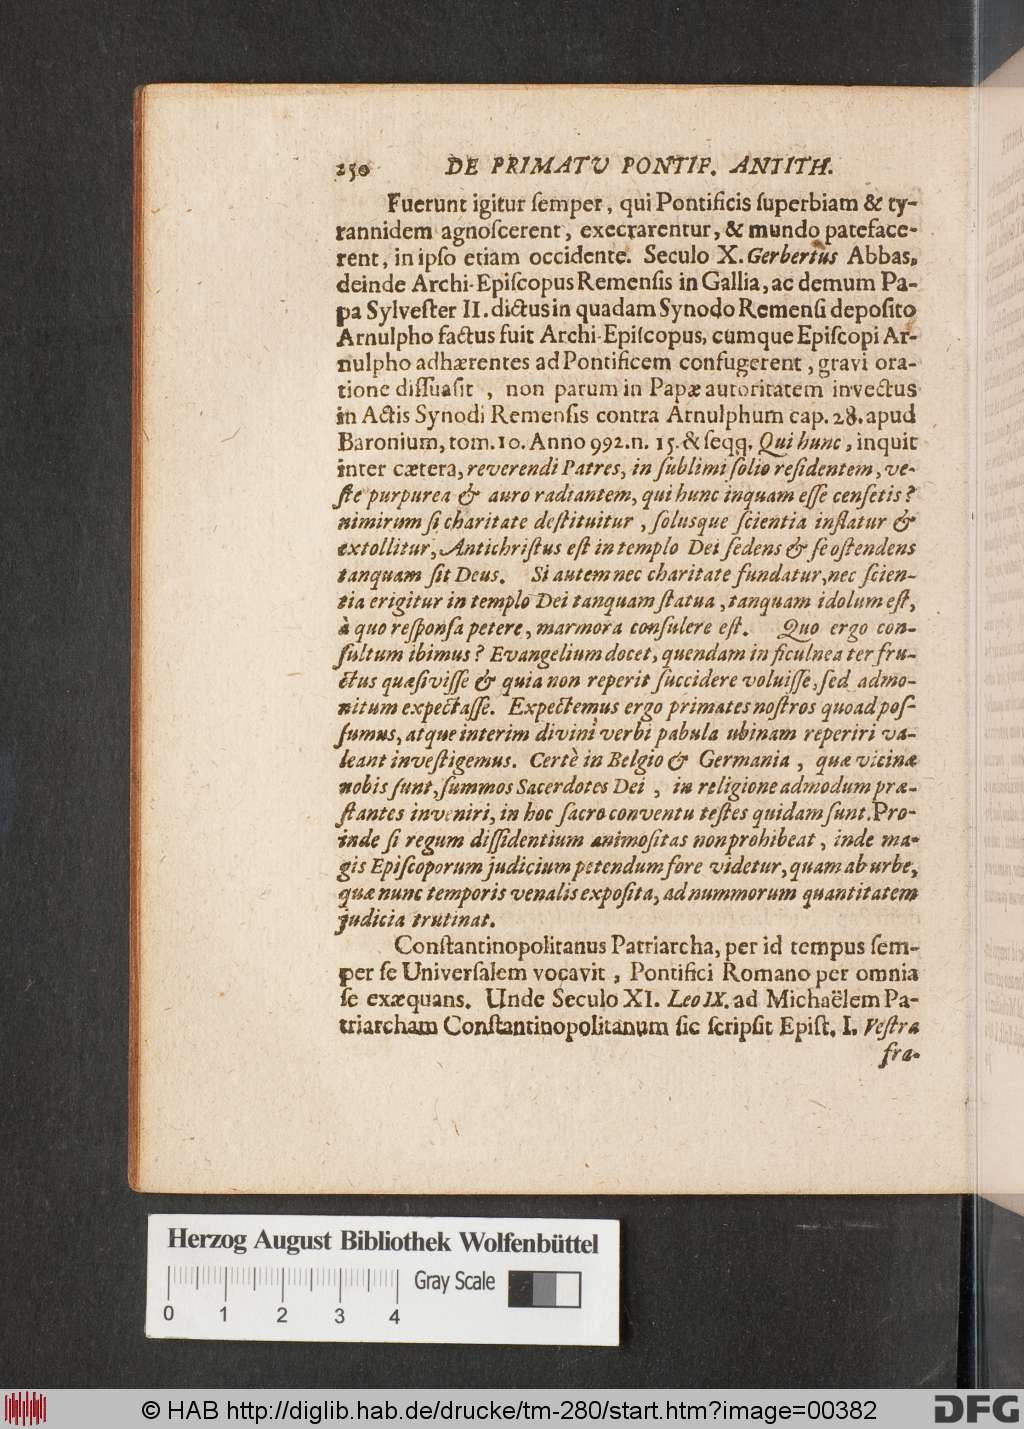 250 DE PRIMATU PONTIF. ANTITH.
Fuerunt igitur ſemper, qui Pontificis ſuperbiam & ty-
rannidem agnoſcerent, execrarentur, & mundo pateface-
rent, in ipſo etiam occidente. Seculo X. Gerbertus Abbas,
deinde Archi-Epiſcopus Remenſis in Gallia, ac demum Pa-
pa Sylveſter II. dictus in quadam Synodo Remenſi depoſito
Arnulpho factus fuit Archi-Epiſcopus, cumque Epiſcopi Ar-
nulpho adhærentes ad Pontificem confugerent, gravi ora-
tione diſſuaſit, non parum in Papæ autoritatem invectus
in Actis Synodi Remenſis contra Arnulphum cap. 28. apud
Baronium, tom. 10. Anno 992. n. 15. & ſeqq. Qui hunc, inquit
inter cætera, reverendi Patres, in ſublimi ſolio reſidentem, ve-
ſte purpurea & auro radiantem, qui hunc inquam eſſe cenſetis?
nimirum ſi charitate deſtituitur, ſolusque ſcientia inflatur &
extollitur, Antichriſtus eſt in templo Dei ſedens & ſe oſtendens
tanquam ſit Deus. Si autem nec charitate fundatur, nec ſcien-
tia erigitur in templo Dei tanquam ſtatua, tanquam idolum eſt,
à quo reſponſa petere, marmora conſulere eſt. Quo ergo con-
ſultum ibimus? Evangelium docet, quendam in ficulnea ter fru-
ctus quæſiviſſe & quia non reperit ſuccidere voluiſſe, ſed admo-
nitum expectaſſe. Expectemus ergo primates noſtros quoad poſ-
ſumus, atque interim divini verbi pabula ubinam reperiri va-
leant inveſtigemus. Certè in Belgio & Germania, quæ vicinæ
nobis ſunt, ſummos Sacerdotes Dei, in religione admodum præ-
ſtantes inveniri, in hoc ſacro conventu teſtes quidam ſunt. Pro-
inde ſi regum diſſidentium animoſitas non prohibeat, inde ma-
gis Epiſcoporum judicium petendum fore videtur, quam ab urbe,
quæ nunc temporis venalis expoſita, ad nummorum quantitatem
judicia trutinat.
Conſtantinopolitanus Patriarcha, per id tempus ſem-
per ſe Univerſalem vocavit, Pontifici Romano per omnia
ſe exæquans. Unde Seculo XI. Leo IX. ad Michaëlem Pa-
triarcham Conſtantinopolitanum ſic ſcripſit Epiſt. I. Veſtra
fra-
Herzog August Bibliothek Wolfenbüttel
Gray Scale
0 1 2 3 4
© HAB http://diglib.hab.de/drucke/tm-280/start.htm?image=00382
DFG